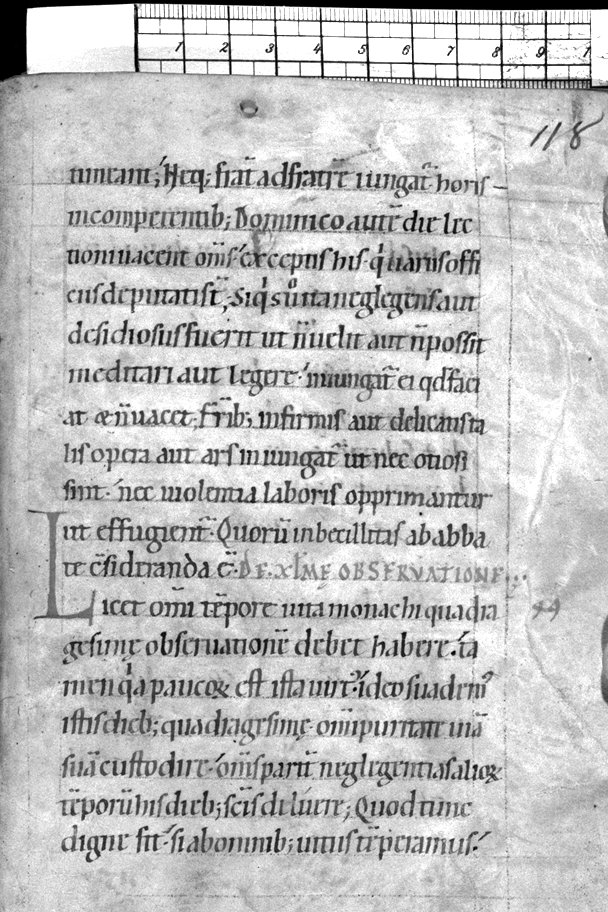 1 2 3 4 5 6 7 8 9 1
118
timeant; Neq; frat̄ ad fratrē iungat̄ horis
incompetentib; Dominico autē die lec
tioni uacent om̄s exceptis his qͥ uariis offi
ciis deputati st̄; Siqͥs uͦ ita neglegens aut
desidiosus fuerit ut n̄ uelit aut n̄ possit
meditari aut legere · iniungat̄ ei qđ faci
at & n̄ uacet; Fr̄ib; infirmis aut delicatis ta
lis opera aut ars iniungat̄ ut nec otiosi
sint · nec uiolentia laboris opprimantur
ut effugient̄. Quorū inbecillitas ab abba
te c̄sideranda ē. DE XLMĘ OBSERVATIONE..
Licet om̄i tēpore uita monachi quadra 49
gesimę obseruationē debet habere. tā
men qͥa paucoꝝ est ista uirt᷒. ideo suadem᷒
istis dieb; quadragesimę om̄i puritate uitā
suā custodire · om̄s parit̄ neglegentias alioꝝ
tēporū his dieb; sc̄is diluere; Quod tunc
digne fit · si ab omnib; uitiis tēperamus.